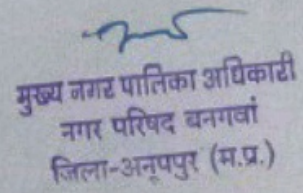 मुख्य नगर पालिका अधिकारी
नगर परिषद बनगवां
जिला-अनूपपुर (म.प्र.)